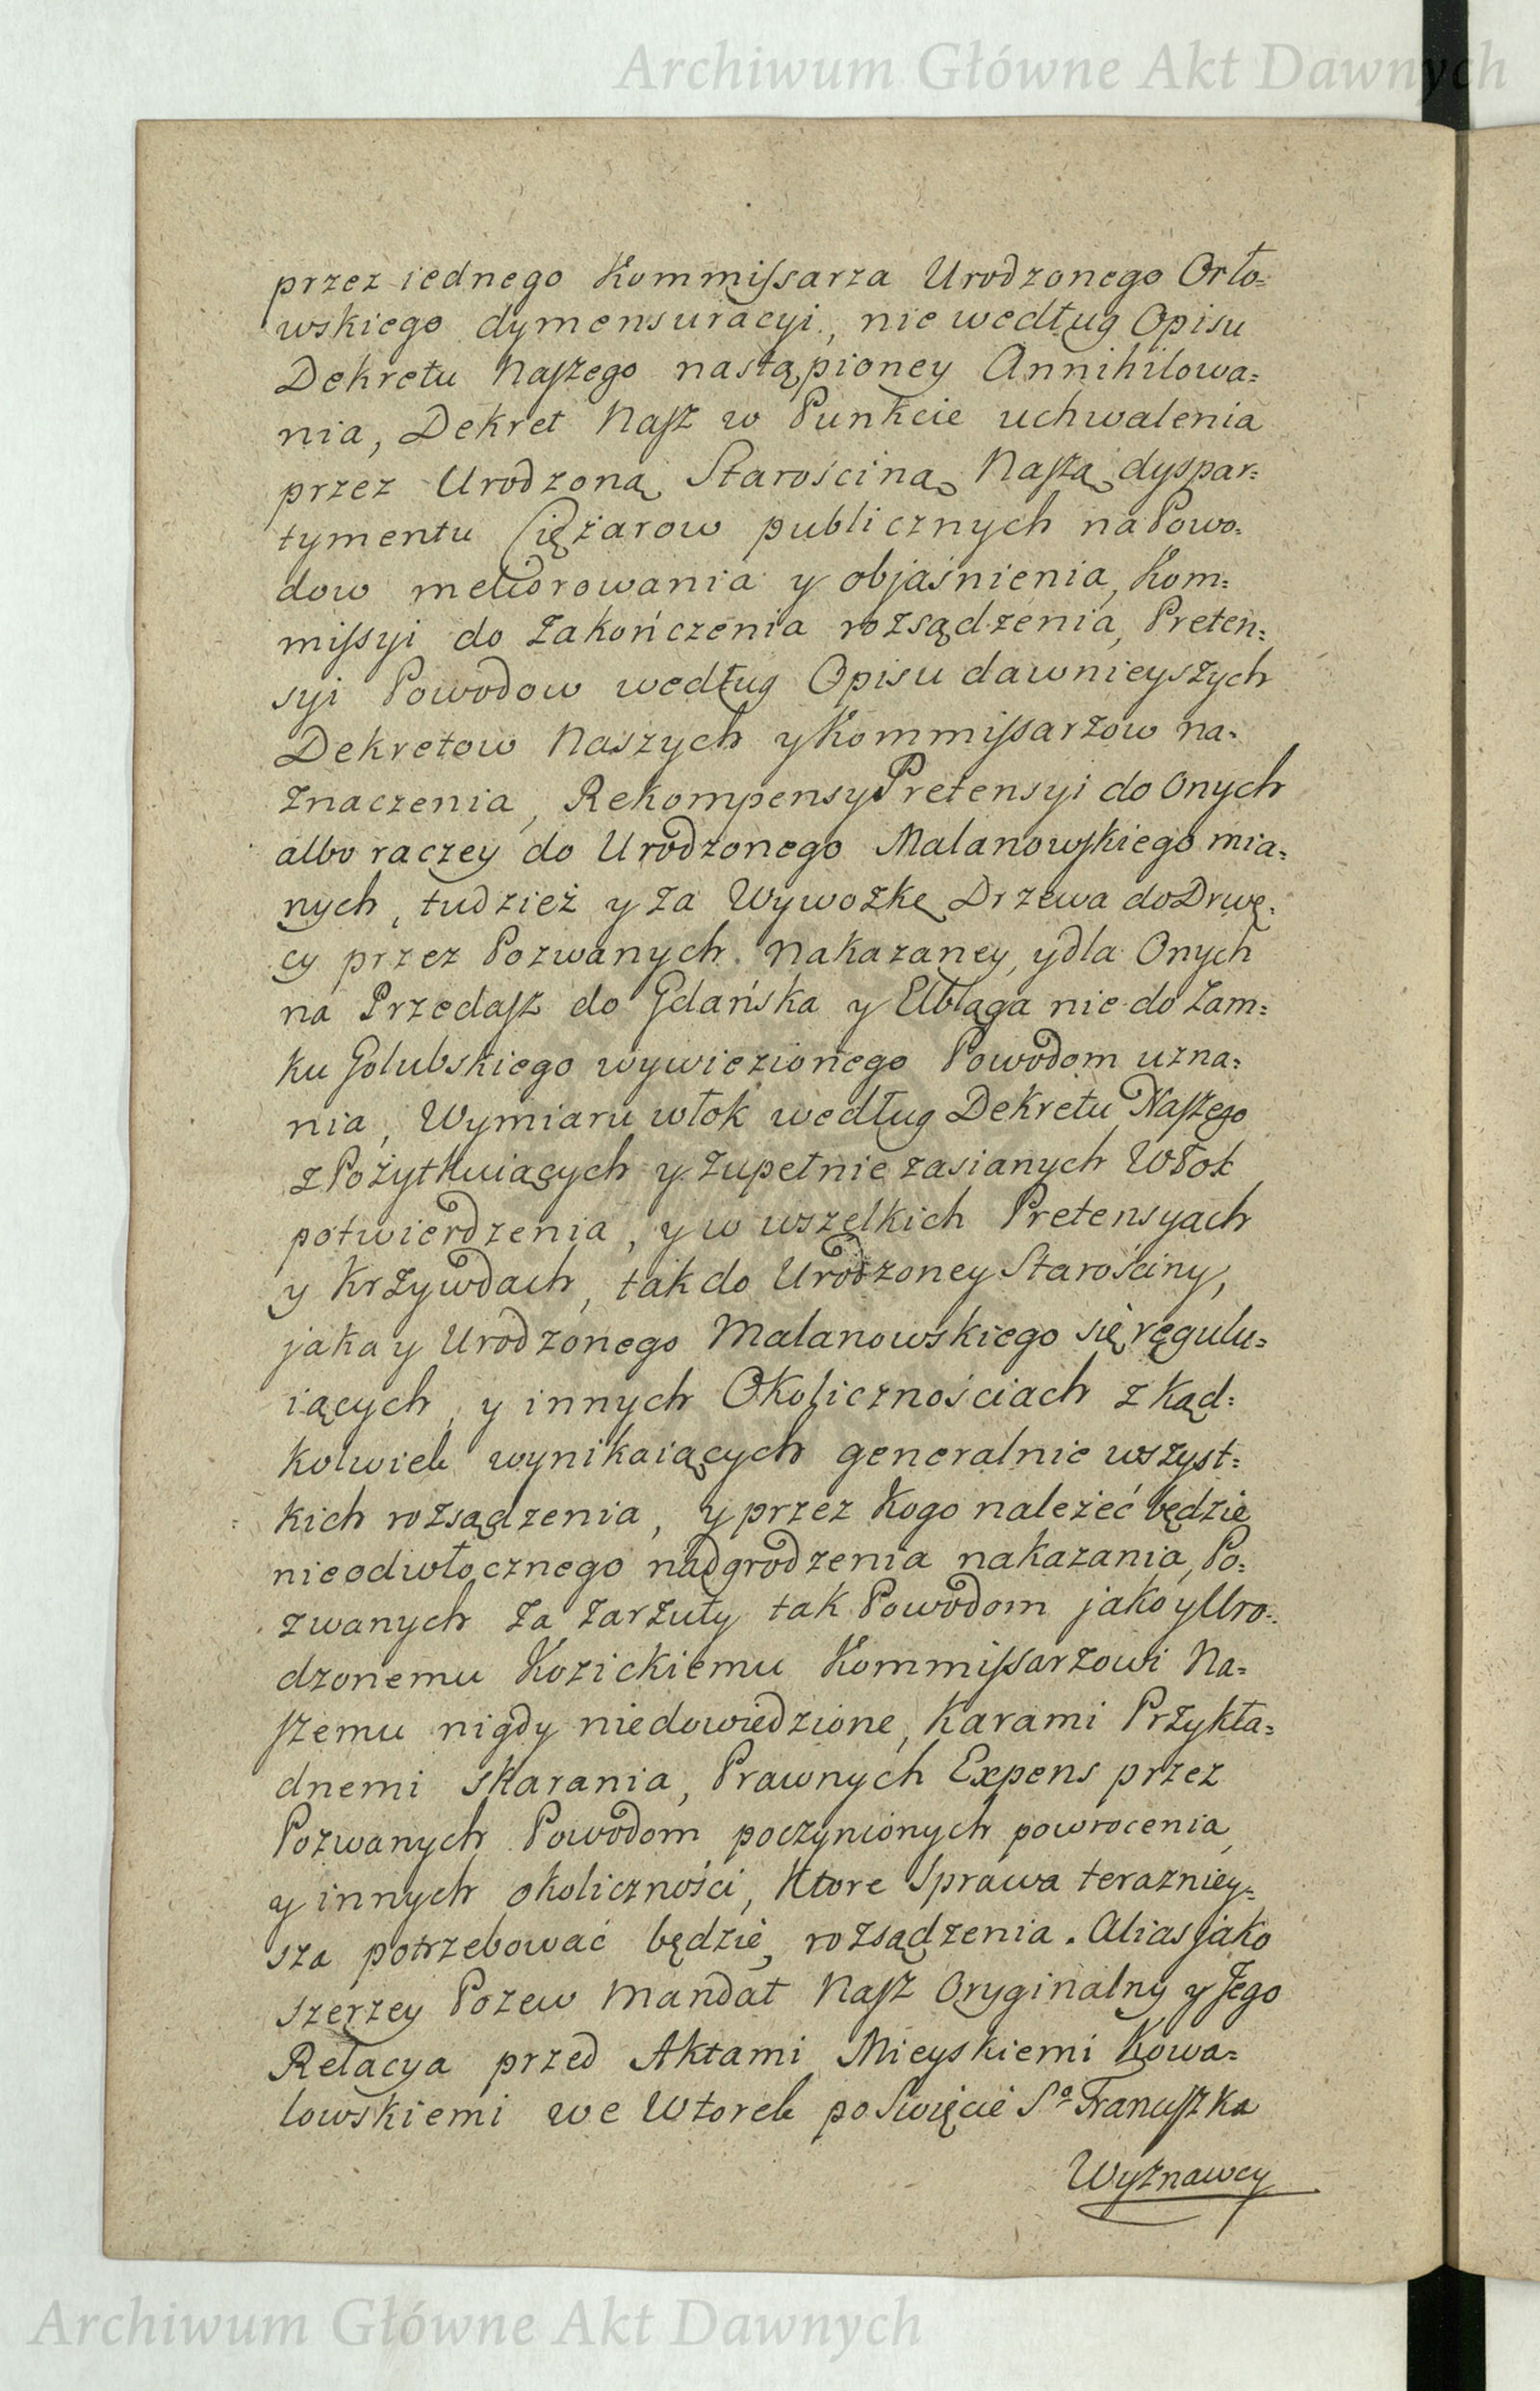 Archiwum Główne Akt Dawnych
przez iednego Kommißarza Urodzonego Orło=
wskiego dymensuracyi, nie według Opisu
Dekretu Naszego nastąpioney Annihilowa=
nia, Dekret Nasz w Punkcie uchwalenia
przez Urodzoną Starościną Naszą dyspar=
tymentu Ciężarow publicznych na Powo=
dow meliorowania y objaśnienia, Kom=
mißyi do zakończenia rozsądzenia, Preten=
syi Powodow według Opisu dawnieyszych
Dekretow Naszych y Kommißarzow na=
znaczenia, Rekompensy Pretensyi do Onych
albo raczey do Urodzonego Malanowskiego mia=
nych, tudzież y za Wywozkę Drzewa do Drwę=
cy przez Pozwanych nakazaney, y dla Onych
na Przedasz do Gdańska y Elbląga nie do Zam=
ku Golubskiego wywiezionego Powodom uzna=
nia, Wymiaru włok według Dekretu Naszego
z Pożytkuiących y zupełnie zasianych Włok
potwierdzenia, y w wszelkich Pretensyach
y Krzywdach, tak do Urodzoney Starościny,
jaka y Urodzonego Malanowskiego się regulu=
iących, y innych Okolicznościach z kąd=
kolwiek wynikaiących generalnie wszyst=
kich rozsądzenia, y przez kogo należeć będzie
nieodwłocznego nadgrodzenia nakazania, Po=
zwanych za zarzuty tak Powodom jako y Uro=
dzonemu Kozickiemu Kommißarzowi Na=
szemu nigdy niedowiedzione, karami Przykła=
dnemi skarania, Prawnych Expens przez
Pozwanych Powodom poczynionych powrocenia,
y innych okoliczności, ktore sprawa teraźniey=
sza potrzebować będzie, rozsądzenia. Alias jako
szerzey Pozew Mandat Nasz Oryginalny y Jego
Relacya przed Aktami Mieyskiemi Kowa=
lowskiemi we Wtorek po Swięcie Sº Franciszka
Wyznawcy
Archiwum Główne Akt Dawnych